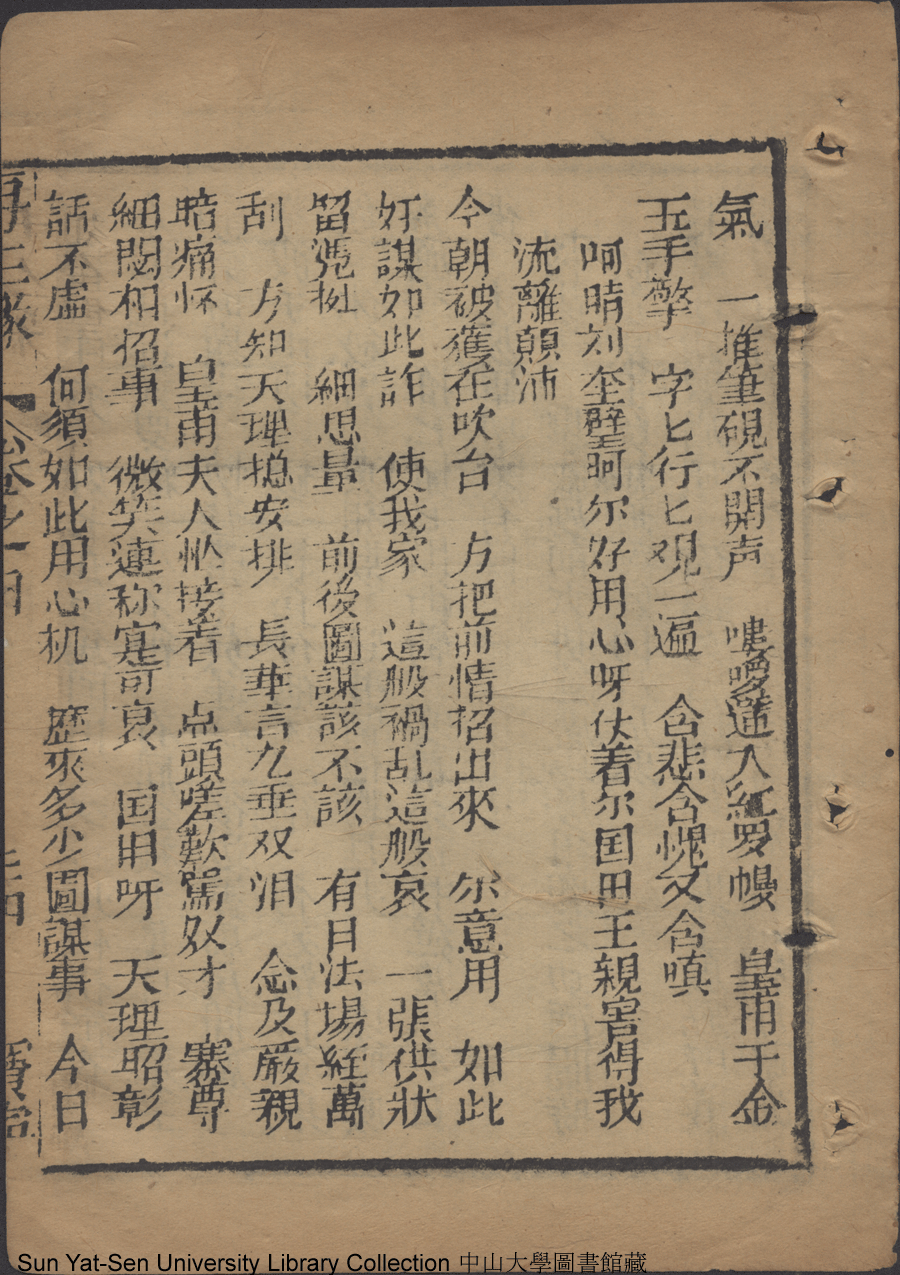 氣　一推筆硯不開声　嘍囉遞入紅罗幔　皇甫千金
五手擎　字匕行匕观一遍　含悲含愧又含嗔
呵晴刘奎璧呵尔好用心呀仗着尔国田王親害得我
流離顛沛
今朝被獲在吹台　方把前情招出來　尔意用　如此
奸謀如此詐　使我家　這般禍乱這般哀　一張供狀
留凴挺　細思量　前後圖謀該不該　有日法場經萬
刮　方知天理揔安排　長華言九垂双泪　念及嚴親
暗痛怀　皇甫夫人忙接看　点頭嗟歎駡奴才　寨尊
細閲相招事　微笑連称寔可哀　国田呀　天理昭彰
話不虛　何須如此用心机　歷來多少圖謀事　今日
再生緣　卷之十四
Sun Yat-Sen University Library Collection 中山大學圖書館藏